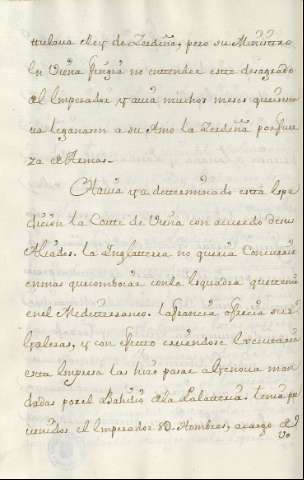 ttulava el Rey de Zerdeña, pero su Ministro
en Viena fingia no entender este desagrado
el Emperador, y avia muchos meses que
a su Amo la Zerdeña por fuer
za de Armas.
Havia ya determinado esta Espe
dicion la Corte de Viena con acuerdo de sus
Aliados. La Inglaterra no queria Concurrir
en mas que comboiar con la Esquadra que tenia
en el Mediterraneo. La francia ofrecia sus
Galeras, y con efecto creiendose executaria
esta Empresa las hizo pasar a Genova man
dadas por el Bahilio de la Tenia pre
venidos el Emperador 8D. Hombres, a cargo de